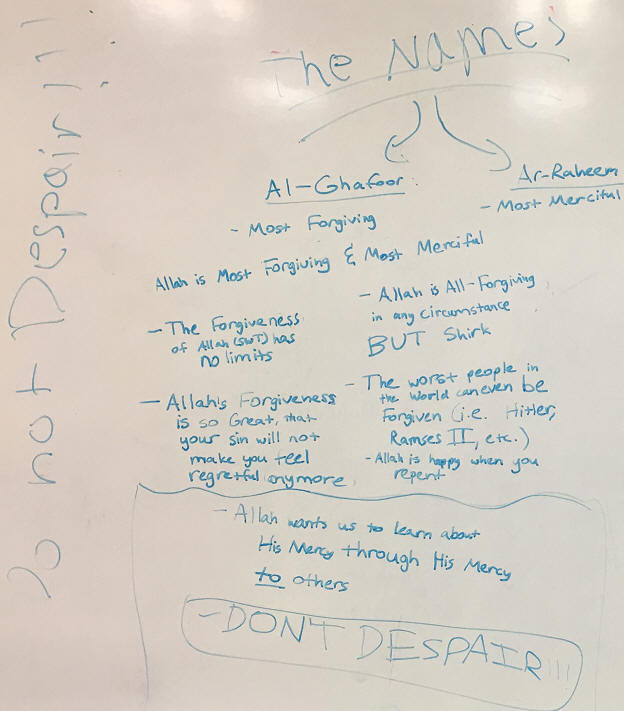 Do not Despair!!!
The Names
Al-Ghafoor:
- Most Forgiving
Ar-Raheem
- Most Merciful
Allah is Most Forgiving & Most Merciful
- The Forgiveness
of Allah (SWT) has
no limits
- Allah's Forgiveness
is so Great, that
your sin will not
make you feel
regretful anymore
- Allah is All-Forgiving
in any circumstance
BUT Shirk
- The worst people in
the world can even be
Forgiven (i.e. Hitler,
Ramses II, etc.)
- Allah is happy when you
repent
- Allah wants us to learn about
His Mercy through His Mercy
to others
- DONT DESPAIR!!!